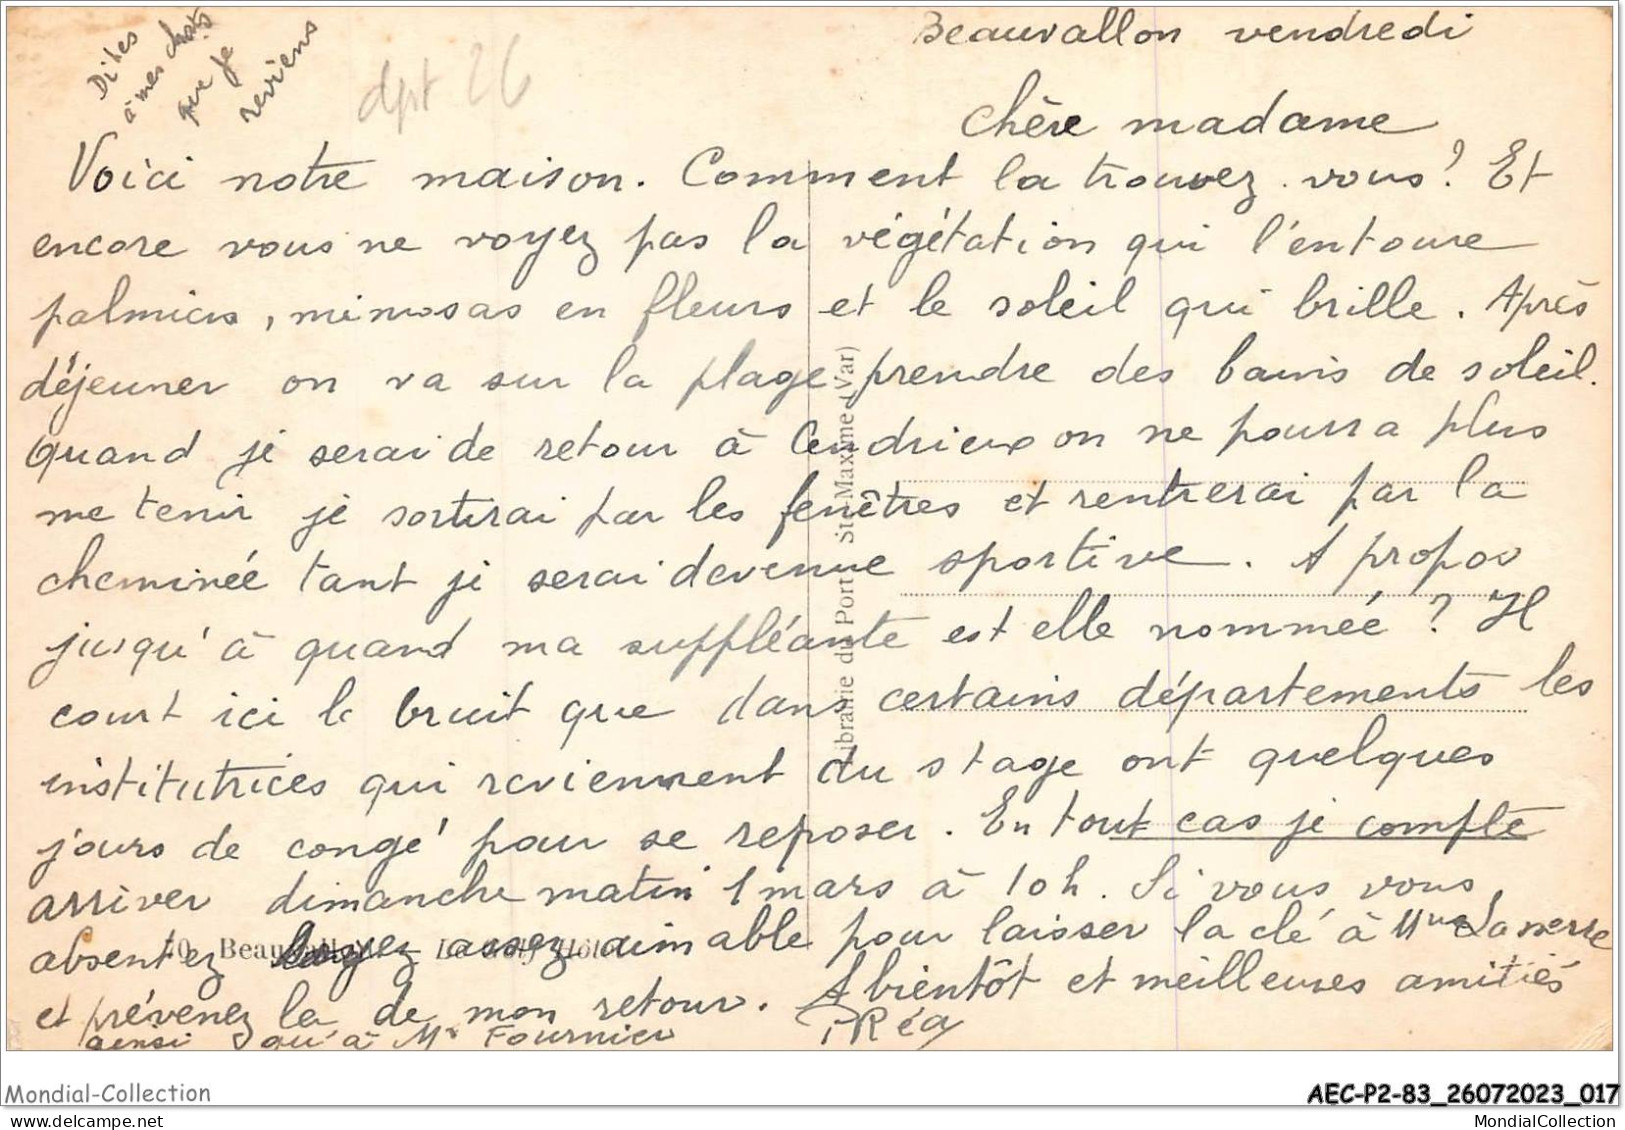 Dites
à mes chats
que je
reviens
dpt 26
Beauvallon vendredi
Chère madame
Voici notre maison. Comment la trouvez-vous? Et
encore vous ne voyez pas la végétation qui l'entoure
palmiers, mimosas en fleurs et le soleil qui brille. Après
déjeuner on va sur la plage prendre des bains de soleil.
Quand je serai de retour à Cendrieux on ne pourra plus
me tenir je sortirai par les fenêtres et rentrerai par la
cheminée tant je serai devenue sportive. A propos
jusqu'à quand ma suppléante est elle nommée? Il
court ici le bruit que dans certains départements les
institutrices qui reviennent du stage ont quelques
jours de congé pour se reposer. En tout cas je compte
arriver dimanche matin 1 mars à 10h. Si vous vous
absentez soyez assez aimable pour laisser la clé à Mme
et prévenez la de mon retour. A bientôt et meilleures amitiés
ainsi qu'à Mr Fournier
Réa
Beauvallon — Le Golf Hôtel
Librairie du Port Ste-Maxime (Var)
Mondial-Collection
AEC-P2-83_26072023_017
MondialCollection